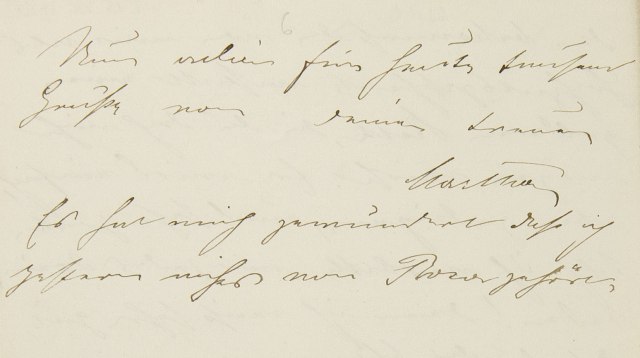 6
Nun adieu für heute tausend
Grüße von deiner treuen
Martha
Es hat mich gewundert daß ich
gestern nichts von Rosa gehört